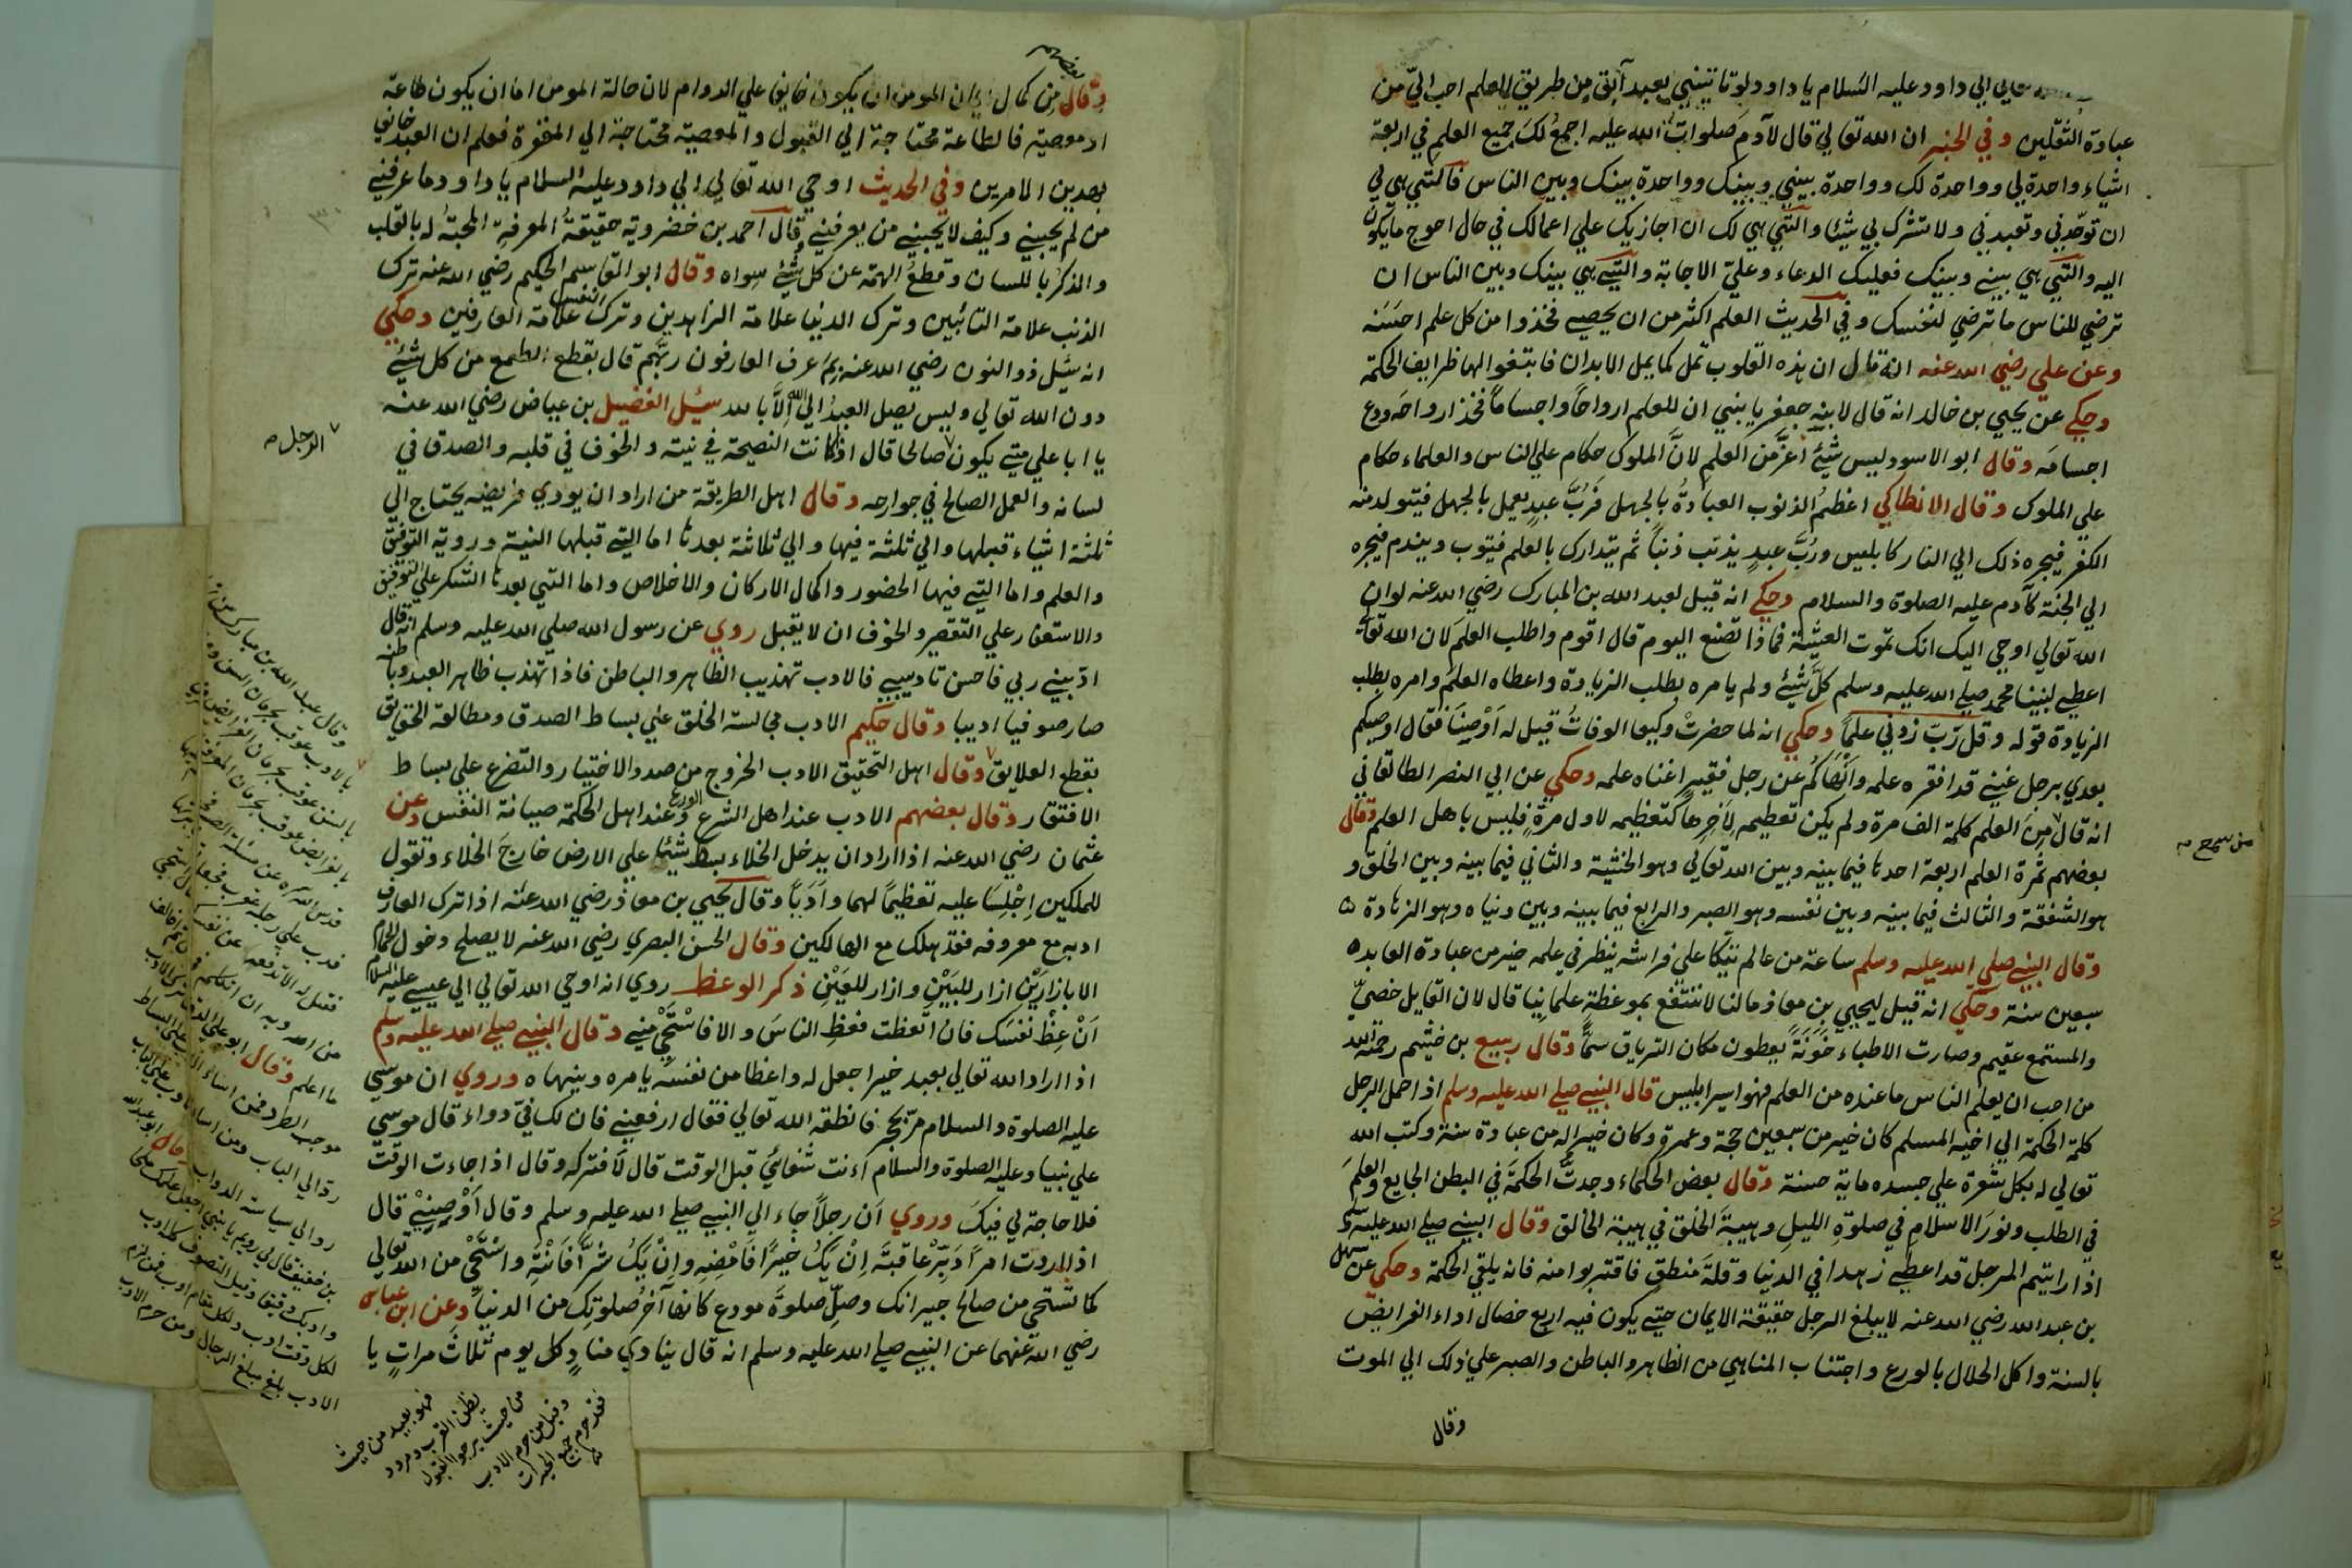 تعالي الي داود عليه السلام يا داود لو تاتيني بعبد آبق من طريق العلم احب اليّ من
عبادة الثقلين وفي الخبر ان الله تعالي قال لآدم صلوات الله عليه اجمع لك جميع العلم في اربعة
اشياء واحدة لي وواحدة لك وواحدة بيني وبينك وواحدة بينك وبين الناس فالتي هي لي
ان توحّدني وتعبدني ولا تشرك بي شيئا والتي هي لك ان اجازيك علي اعمالك في حال احوج ما يكون
اليه والتي هي بيني وبينك فعليك الدعاء وعليّ الاجابة والتي هي بينك وبين الناس ان
ترضي للناس ما ترضي لنفسك وفي الحديث العلم اكثر من ان يحصي فخذوا من كل علم احسنه
وعن علي رضي الله عنه انه قال ان هذه القلوب تمل كما يمل الابدان فابتغوا لها ظرايف الحكمة
وحكي عن يحيي بن خالد انه قال لابنه جعفر يا بني ان للعلم ارواحاً واجساماً فخذ ارواحه ودع
اجسامه وقال ابو الاسود ليس شيئ اعزّ من العلم لانّ الملوك حكام علي الناس والعلماء حكام
علي الملوك وقال الانطاكي اعظم الذنوب العبادةُ بالجهل فربّ عبدٍ يعمل بالجهل فيتولد منه
الكفر فيجره ذلك الي النار كابليس وربّ عبدٍ يذنب ذنباً ثم يتدارك بالعلم فيتوب ويندم فيجره
الي الجنة كآدم عليه الصلوة والسلام وحكي انه قيل لعبد الله بن المبارك رضي الله عنه لو ان
الله تعالي اوحي اليك انك تموت العشية فماذا تصنع اليوم قال اقوم واطلب العلم لان الله تعالي
اعطي لنبينا محمد صلي الله عليه وسلم كلّ شيئ ولم يامره بطلب الزيادة واعطاه العلم وامره بطلب
الزيادة قوله وقل ربّ زدني علماً وحكي انه لما حضرتْ وكيعا الوفاتُ قيل له اَوْصِنَا فقال اوصيكم
بعدي برجل غني قد افقره علمه وانهاكم عن رجل فقير اغناه علمه وحكي عن ابي النصر الطالقاني
انه قال من العلم كلمة الف مرة ولم يكن تعظيمه لآخرها كتعظيمه لاول مرةٍ فليس باهل العلم وقال
من سمع
بعضهم ثمرة العلم اربعة احدها فيما بينه وبين الله تعالي وهو الخشية والثاني فيما بينه وبين الخلق و
هو الشفقة والثالث فيما بينه وبين نفسه وهو الصبر والرابع فيما بينه وبين دنياه وهو الزهادة
وقال النبي صلي الله عليه وسلم ساعة من عالم يتكا علي فراشه ينظر في علمه خير من عبادة العابد
سبعين سنة وحكي انه قيل ليحيي بن معاذ ما لنا لا ننتفع بموعظة علماينا قال لان القايل خصيّ
والمستمع عقيم وصارت الاطباء خَوَنَةً يعطون مكان الترياق سمّاً وقال ربيع بن خيثم رحمه الله
من احب ان يعلم الناس ما عنده من العلم فهو اسير ابليس قال النبي صلي الله عليه وسلم اذا حمل الرجل
كلمة الحكمة الي اخيه المسلم كان خير من سبعين حجة وعمرة وكان خير له من عبادة سنة وكتب الله
تعالي له بكل شعرة علي جسده ماية حسنة وقال بعض الحكماء وجدتُ الحكمةَ في البطن الجايع والعلمَ
في الطلب ونورَ الاسلام في صلوةِ الليلِ وهيبةَ الخلق في هيبة الخالق وقال النبي صلي الله عليه وسلم
اذا رايتم الرجل قد اعطي زهدا في الدنيا وقلةَ منطقٍ فاقتربوا منه فانه يلقي الحكمة وحكي عن سهل
بن عبد الله رضي الله عنه لا يبلغ الرجل حقيقة الايمان حتي يكون فيه اربع خصال اداء الفرايض
بالسنة واكل الحلال بالورع واجتناب المناهي من الظاهر والباطن والصبر علي ذلك الي الموت
وقال
بعضهم
وقال من كمال ايمان المومن ان يكون خايفا علي الدوام لان حالة المومن اما ان يكون طاعة
او معصية فالطاعة محتاجة الي القبول والمعصية محتاجة الي المغفرة فعلم ان العبد خايف
بهدين الامرين وفي الحديث اوحي الله تعالي الي داود عليه السلام يا داود ما عرفني
من لم يحبني وكيف لا يحبني من يعرفني وقال احمد بن خضرويه حقيقةُ المعرفةِ المحبةُ له بالقلب
والذكرُ باللسان وقطعُ الهمة عن كل شيئ سواه وقال ابو القاسم الحكيم رضي الله عنه ترك
الذنب علامة التائبين وترك الدنيا علامة الزاهدين وترك النفس علامة العارفين وحكي
انه سئل ذو النون رضي الله عنه بِمَ عرف العارفون ربّهم قال بقطع الطمع من كل شيئ
دون الله تعالي وليس يصل العبدُ الي الله اِلاّ بالله سئيل الفضيل بن عياض رضي الله عنه
يا ابا علي متي يكون صالحا قال اذا كانت النصيحة في نيته والخوف في قلبه والصدق في
الرجل
لسانه والعمل الصالح في جوارحه وقال اهل الطريقة من اراد ان يودي فريضه يحتاج الي
ثلثة اشياء قبلها والي ثلثة فيها والي ثلاثة بعدها اما التي قبلها النية وروية التوفيق
والعلم واما التي فيها الحضور واكمال الاركان والاخلاص واما التي بعدها الشكر علي التوفيق
والاستغفار علي التقصير والخوف ان لا يقبل روي عن رسول الله صلي الله عليه وسلم انه قال
ادّبني ربي فاحسن تاديبي فالادب تهذيب الظاهر والباطن فاذا تهذب ظاهر العبد وباطنه
صار صوفيا اديبا وقال حكيم الادب مجالسة الخلق علي بساط الصدق ومطالعة الحقايق
بقطع العلايق وقال اهل التحقيق الادب الخروج من صدو الاختيار والتضرع علي بساط
الافتقار وقال بعضهم الادب عند اهل الشرع الورع وعند اهل الحكمة صيانة النفس وعن
عثمان رضي الله عنه اذا اراد ان يدخل الخلاء بسط شيئا علي الارض خارجَ الخلاء وتقول
للملكين اِجْلِسَا عليه تعظيماً لهما واَدَباً وقال يحيي بن معاذ رضي الله عنه اذا ترك العارف
ادبه مع معروفه فقد هلك مع الهالكين وقال الحسن البصري رضي الله عنه لا يصلح دخول الحمام
الا بازارَيْنِ ازار للبَيْنِ وازار للعَيْنِ ذكر الوعظ روي انه اوحي الله تعالي الي عيسي عليه السلام
اَنْ عِظْ نفسَك فان اتّعظت فعظِ الناسَ والا فاسْتَحْيِ مني وقال النبي صلي الله عليه وسلم
اذا اراد الله تعالي بعبد خيرا جعل له واعظا من نفسه يامره وينهاه وروي ان موسي
عليه الصلوة والسلام مرّ بحجر فانطقه الله تعالي فقال ارفعني فان لك فيّ دواء قال موسي
علي نبينا وعليه الصلوة والسلام أأنت شفائي قبل الوقت قال لا فتركه وقال اذا جاءت الوقت
فلا حاجة لي فيك وروي اَن رجلاً جاء الي النبي صلي الله عليه وسلم وقال اَوْصِنِيْ قال
اذا اردت امراً دَبِّرْ عاقبتَه اِنْ يَكُ خيراً فَاَمْضِهِ واِنْ يَكُ شرّاً فَانْتَهِ واسْتَحْيِ من الله تعالي
كما تستحي من صالح جيرانك وصلِّ صلوةَ مودع كانها آخرُ صلوتِك من الدنيا وعن ابن عباس
رضي الله عنهما عن النبي صلي الله عليه وسلم انه قال ينادي منادٍ كل يوم ثلاثَ مراتٍ يا
وقال عبد الله بن مبارك
بالادب عوقب بحرمان السنن
بالسنن عوقب بحرمان الفرايض
بالفرايض عوقب بحرمان المعرفة
ما اعلم وقال ابو علي الدقاق ترك الادب
موجب الطرد فمن اساء الادب علي البساط
ردّ الي الباب ومن اساء الادب علي الباب
رد الي سياسة الدواب وقال ابو عبد الله
بن خفيف قال لي رويم يا بني اجعل عملك ملحا
وادبك دقيقا وقيل التصوف كله ادب
لكل وقت ادب ولكل مقام ادب فمن لزم
الادب بلغ مبلغ الرجال ومن حرم الادب
فهو بعيد من حيث
يظن القرب ومردود
من حيث يرجوا القبول
وقيل من حرم الادب
فقد حرم جميع الخيرات